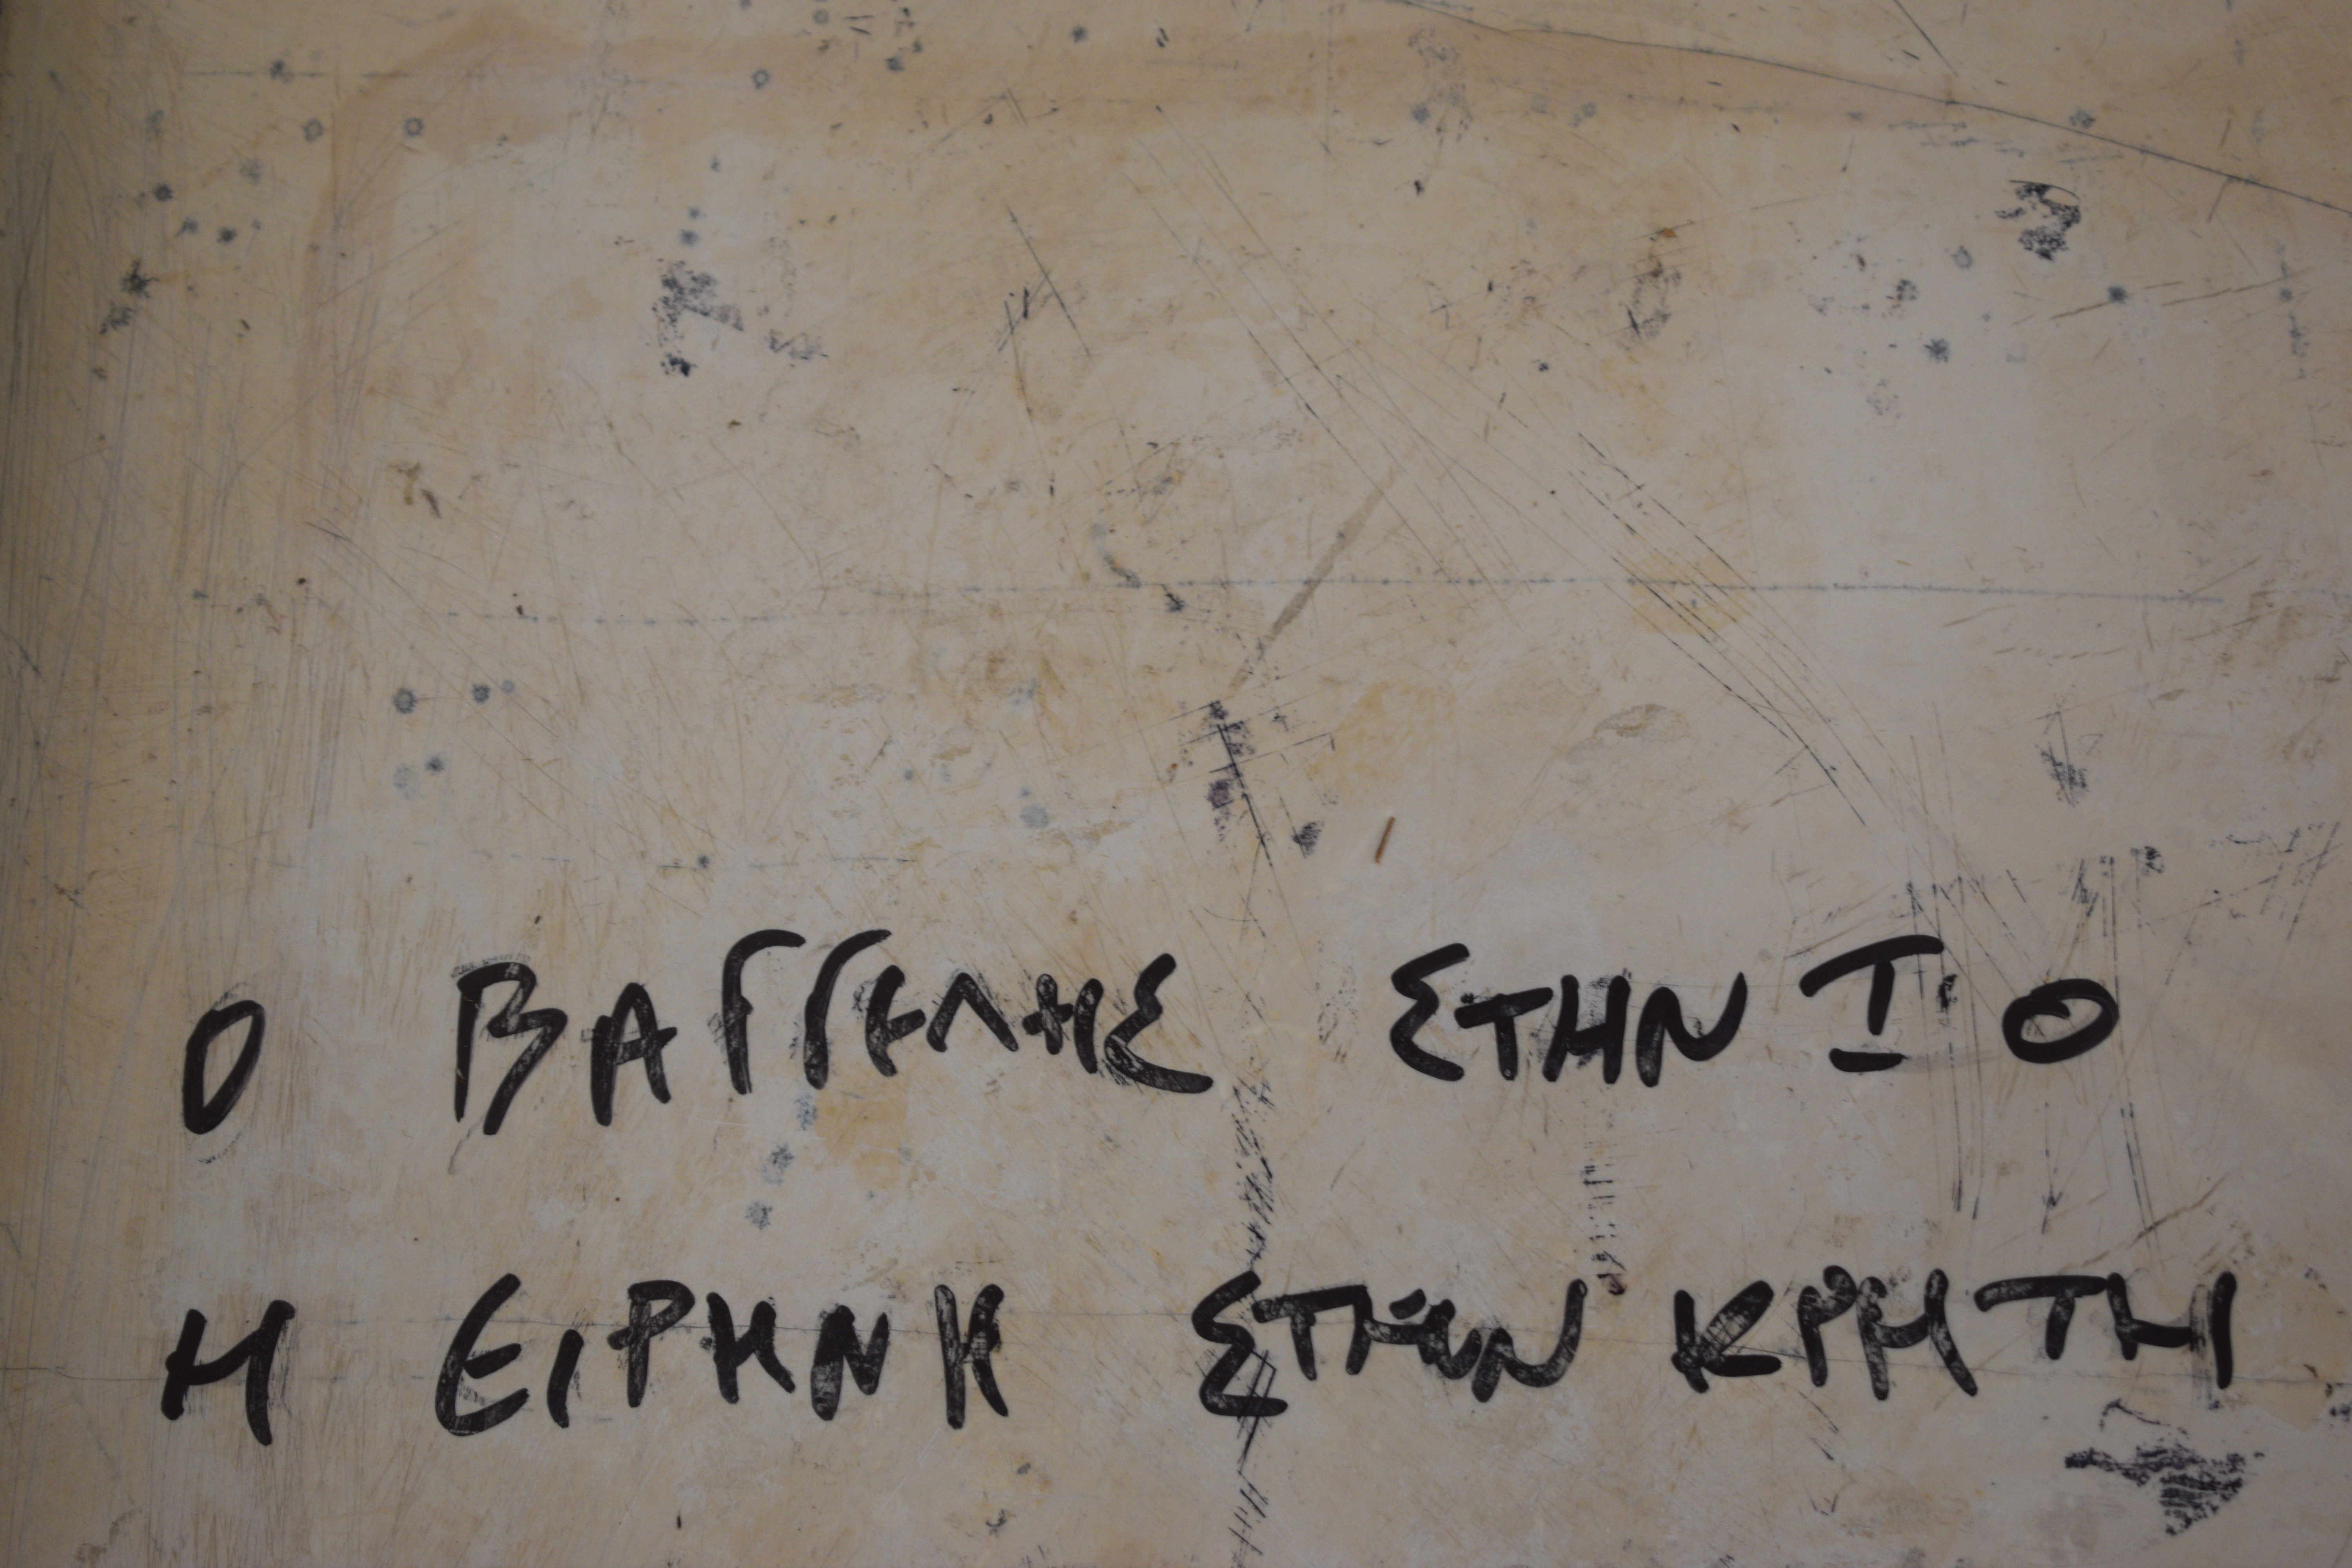 Ο ΒΑΓΓΕΛΗΣ ΣΤΗΝ ΙΟ
Η ΕΙΡΗΝΗ ΣΤΗΝ ΚΡΗΤΗ